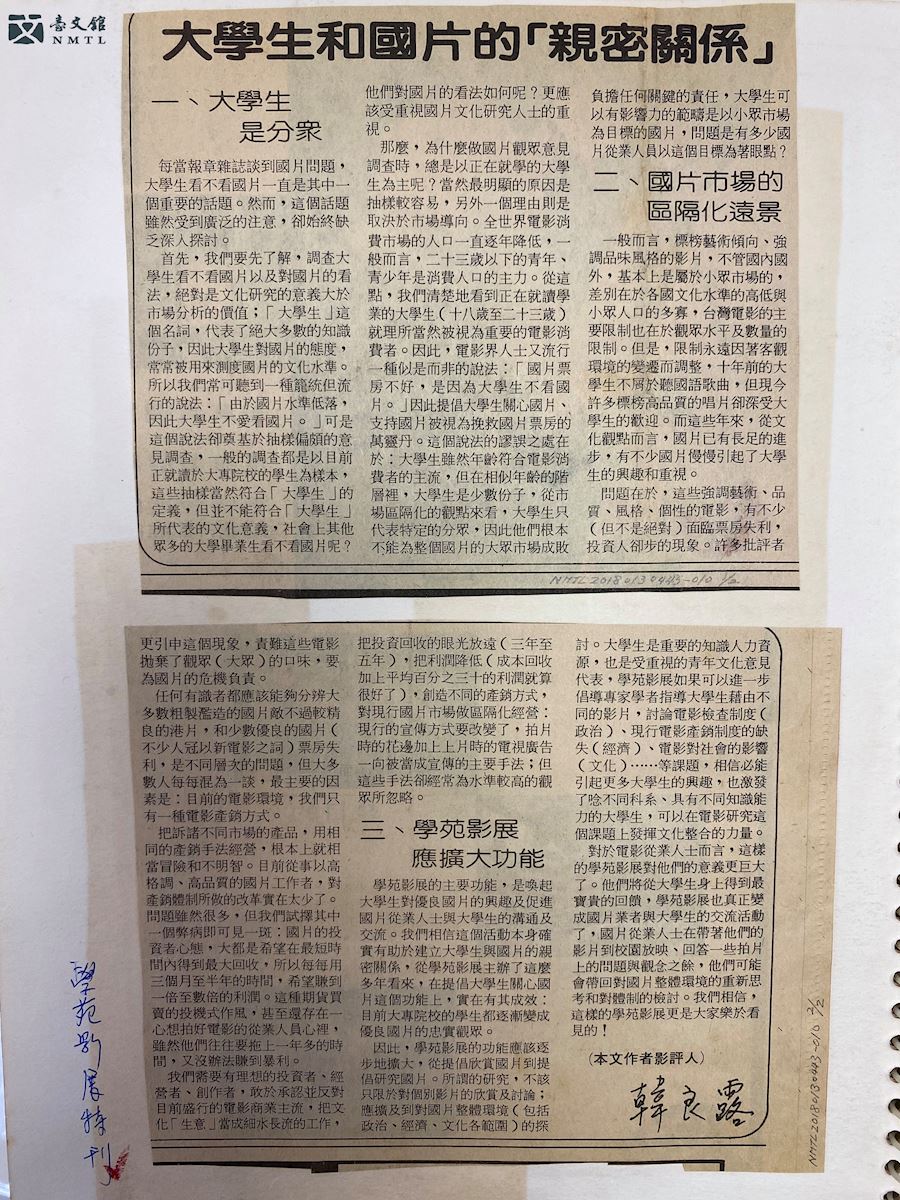 臺文館
NMTL
大學生和國片的「親密關係」
一、大學生
是分眾
每當報章雜誌談到國片問題，
大學生看不看國片一直是其中一
個重要的話題。然而，這個話題
雖然受到廣泛的注意，卻始終缺
乏深入探討。
首先，我們要先了解，調查大
學生看不看國片以及對國片的看
法，絕對是文化研究的意義大於
市場分析的價值；「大學生」這
個名詞，代表了絕大多數的知識
份子，因此大學生對國片的態度，
常常被用來測度國片的文化水準。
所以我們常可聽到一種籠統但流
行的說法：「由於國片水準低落，
因此大學生不愛看國片。」可是
這個說法卻奠基於抽樣偏頗的意
見調查，一般的調查都是以目前
正就讀於大專院校的學生為樣本，
這些抽樣當然符合「大學生」的
定義，但並不能符合「大學生」
所代表的文化意義，社會上其他
眾多的大學畢業生看不看國片呢？
他們對國片的看法如何呢？更應
該受重視國片文化研究人士的重
視。
那麼，為什麼做國片觀眾意見
調查時，總是以正在就學的大學
生為主呢？當然最明顯的原因是
抽樣較容易，另外一個理由則是
取決於市場導向。全世界電影消
費市場的人口一直逐年降低，一
般而言，二十三歲以下的青年、
青少年是消費人口的主力。從這
點，我們清楚地看到正在就讀學
業的大學生（十八歲至二十三歲）
就理所當然被視為重要的電影消
費者。因此，電影界人士又流行
一種似是而非的說法：「國片票
房不好，是因為大學生不看國
片。」因此提倡大學生關心國片、
支持國片被視為挽救國片票房的
萬靈丹。這個說法的謬誤之處在
於：大學生雖然年齡符合電影消
費者的主流，但在相似年齡的階
層裡，大學生是少數份子，從市
場區隔化的觀點來看，大學生只
代表特定的分眾，因此他們根本
不能為整個國片的大眾市場成敗
負擔任何關鍵的責任，大學生可
以有影響力的範疇是以小眾市場
為目標的國片，問題是有多少國
片從業人員以這個目標為著眼點？
二、國片市場的
區隔化遠景
一般而言，標榜藝術傾向、強
調品味風格的影片，不管國內國
外，基本上是屬於小眾市場的，
差別在於各國文化水準的高低與
小眾人口的多寡，台灣電影的主
要限制也在於觀眾水平及數量的
限制。但是，限制永遠因著客觀
環境的變遷而調整，十年前的大
學生不屑於聽國語歌曲，但現今
許多標榜高品質的唱片卻深受大
學生的歡迎。而這些年來，從文
化觀點而言，國片已有長足的進
步，有不少國片慢慢引起了大學
生的興趣和重視。
問題在於，這些強調藝術、品
質、風格、個性的電影，有不少
（但不是絕對）面臨票房失利，
投資人卻步的現象。許多批評者
NMTL20180130443-010 1/2
更引申這個現象，責難這些電影
拋棄了觀眾（大眾）的口味，要
為國片的危機負責。
任何有識者都應該能夠分辨大
多數粗製濫造的國片敵不過較精
良的港片，和少數優良的國片（
不少人冠以新電影之詞）票房失
利，是不同層次的問題，但大多
數人每每混為一談，最主要的因
素是：目前的電影環境，我們只
有一種電影產銷方式。
把訴諸不同市場的產品，用相
同的產銷手法經營，根本上就相
當冒險和不明智。目前從事以高
格調、高品質的國片工作者，對
產銷體制所做的改革實在太少了。
問題雖然很多，但我們試擇其中
一個弊病即可見一斑：國片的投
資者心態，大都是希望在最短時
間內得到最大回收，所以每每用
三個月至半年的時間，希望賺到
一倍至數倍的利潤。這種期貨買
賣的投機式作風，甚至還存在一
心想拍好電影的從業人員心裡，
雖然他們往往要拖上一年多的時
間，又沒辦法賺到暴利。
我們需要有理想的投資者、經
營者、創作者，敢於承認並反對
目前盛行的電影商業主流，把文
化「生意」當成細水長流的工作，
把投資回收的眼光放遠（三年至
五年），把利潤降低（成本回收
加上平均百分之三十的利潤就算
很好了），創造不同的產銷方式，
對現行國片市場做區隔化經營：
現行的宣傳方式要改變了，拍片
時的花邊加上上片時的電視廣告
一向被當成宣傳的主要手法；但
這些手法卻經常為水準較高的觀
眾所忽略。
三、學苑影展
應擴大功能
學苑影展的主要功能，是喚起
大學生對優良國片的興趣及促進
國片從業人士與大學生的溝通及
交流。我們相信這個活動本身確
實有助於建立大學生與國片的親
密關係，從學苑影展主辦了這麼
多年看來，在提倡大學生關心國
片這個功能上，實在有其成效：
目前大專院校的學生都逐漸變成
優良國片的忠實觀眾。
因此，學苑影展的功能應該逐
步地擴大，從提倡欣賞國片到提
倡研究國片。所謂的研究，不該
只限於對個別影片的欣賞及討論；
應擴及到對國片整體環境（包括
政治、經濟、文化各範圍）的探
討。大學生是重要的知識人力資
源，也是受重視的青年文化意見
代表，學苑影展如果可以進一步
倡導專家學者指導大學生藉由不
同的影片，討論電影檢查制度（
政治）、現行電影產銷制度的缺
失（經濟）、電影對社會的影響
（文化）……等課題，相信必能
引起更多大學生的興趣，也激發
了唸不同科系、具有不同知識能
力的大學生，可以在電影研究這
個課題上發揮文化整合的力量。
對於電影從業人士而言，這樣
的學苑影展對他們的意義更巨大
了。他們將從大學生身上得到最
寶貴的回饋，學苑影展也真正變
成國片業者與大學生的交流活動
了，國片從業人士在帶著他們的
影片到校園放映、回答一些拍片
上的問題與觀念之餘，他們可能
會帶回對國片整體環境的重新思
考和對體制的檢討。我們相信，
這樣的學苑影展更是大家樂於看
見的！
（本文作者影評人）
韓良露
NMTL20180130443-010 2/2
學苑影展特刊